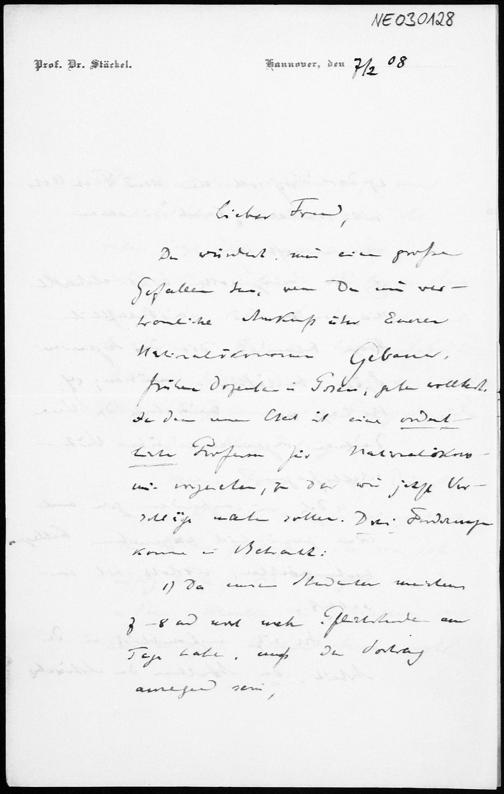 NE030128
Prof. Dr. Stäckel.
Hannover, den 7/2 08
Lieber Freund,
Du würdest mir einen großen
Gefallen tun, wenn Du mir ver-
trauliche Auskunft über Eueren
Nationalökonomen Gebauer,
früher Dozenten in Posen, geben wolltest.
In dem neuen Etat ist eine ordent-
liche Professur für Nationalökono-
mie vorgesehen, zu der wir jetzt Vor-
schläge machen sollen. Drei Forderungen
kommen in Betracht:
1) Da unsere Studenten meistens
7-8 und noch mehr Pflichtstunden am
Tage haben, muß der Vortrag
anregend sein,